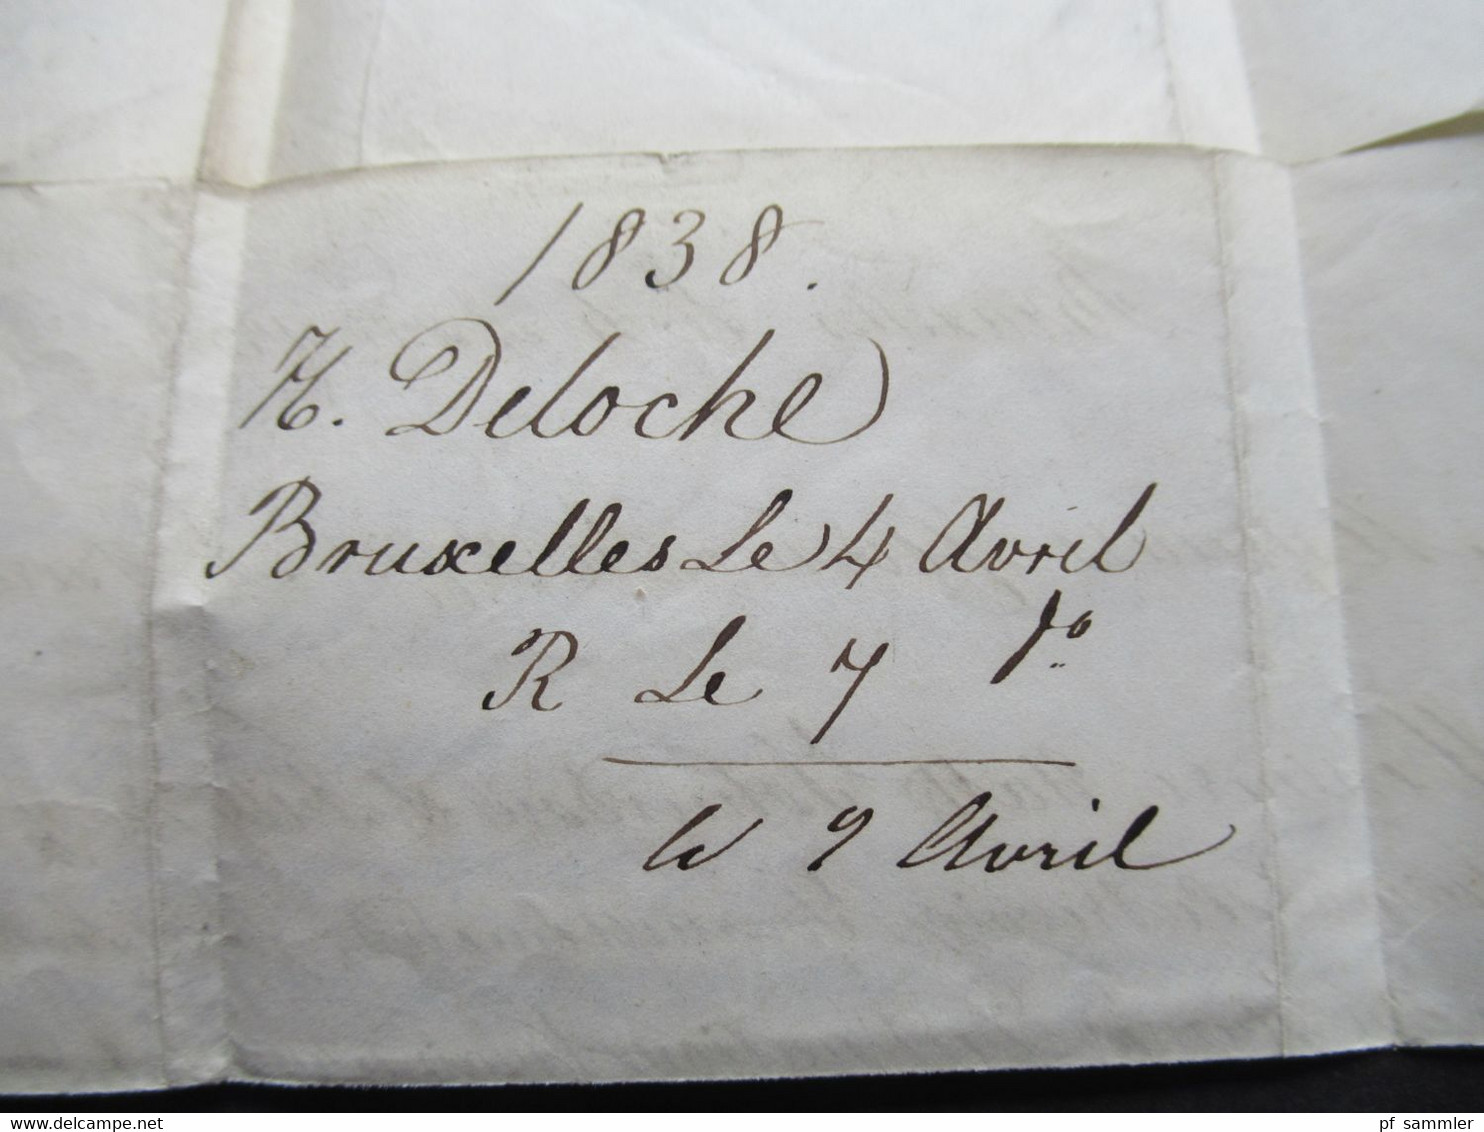 1838.
H. Deloche
Bruxelles Le 4 Avril
R Le 7 do
le 9 Avril
pf sammler